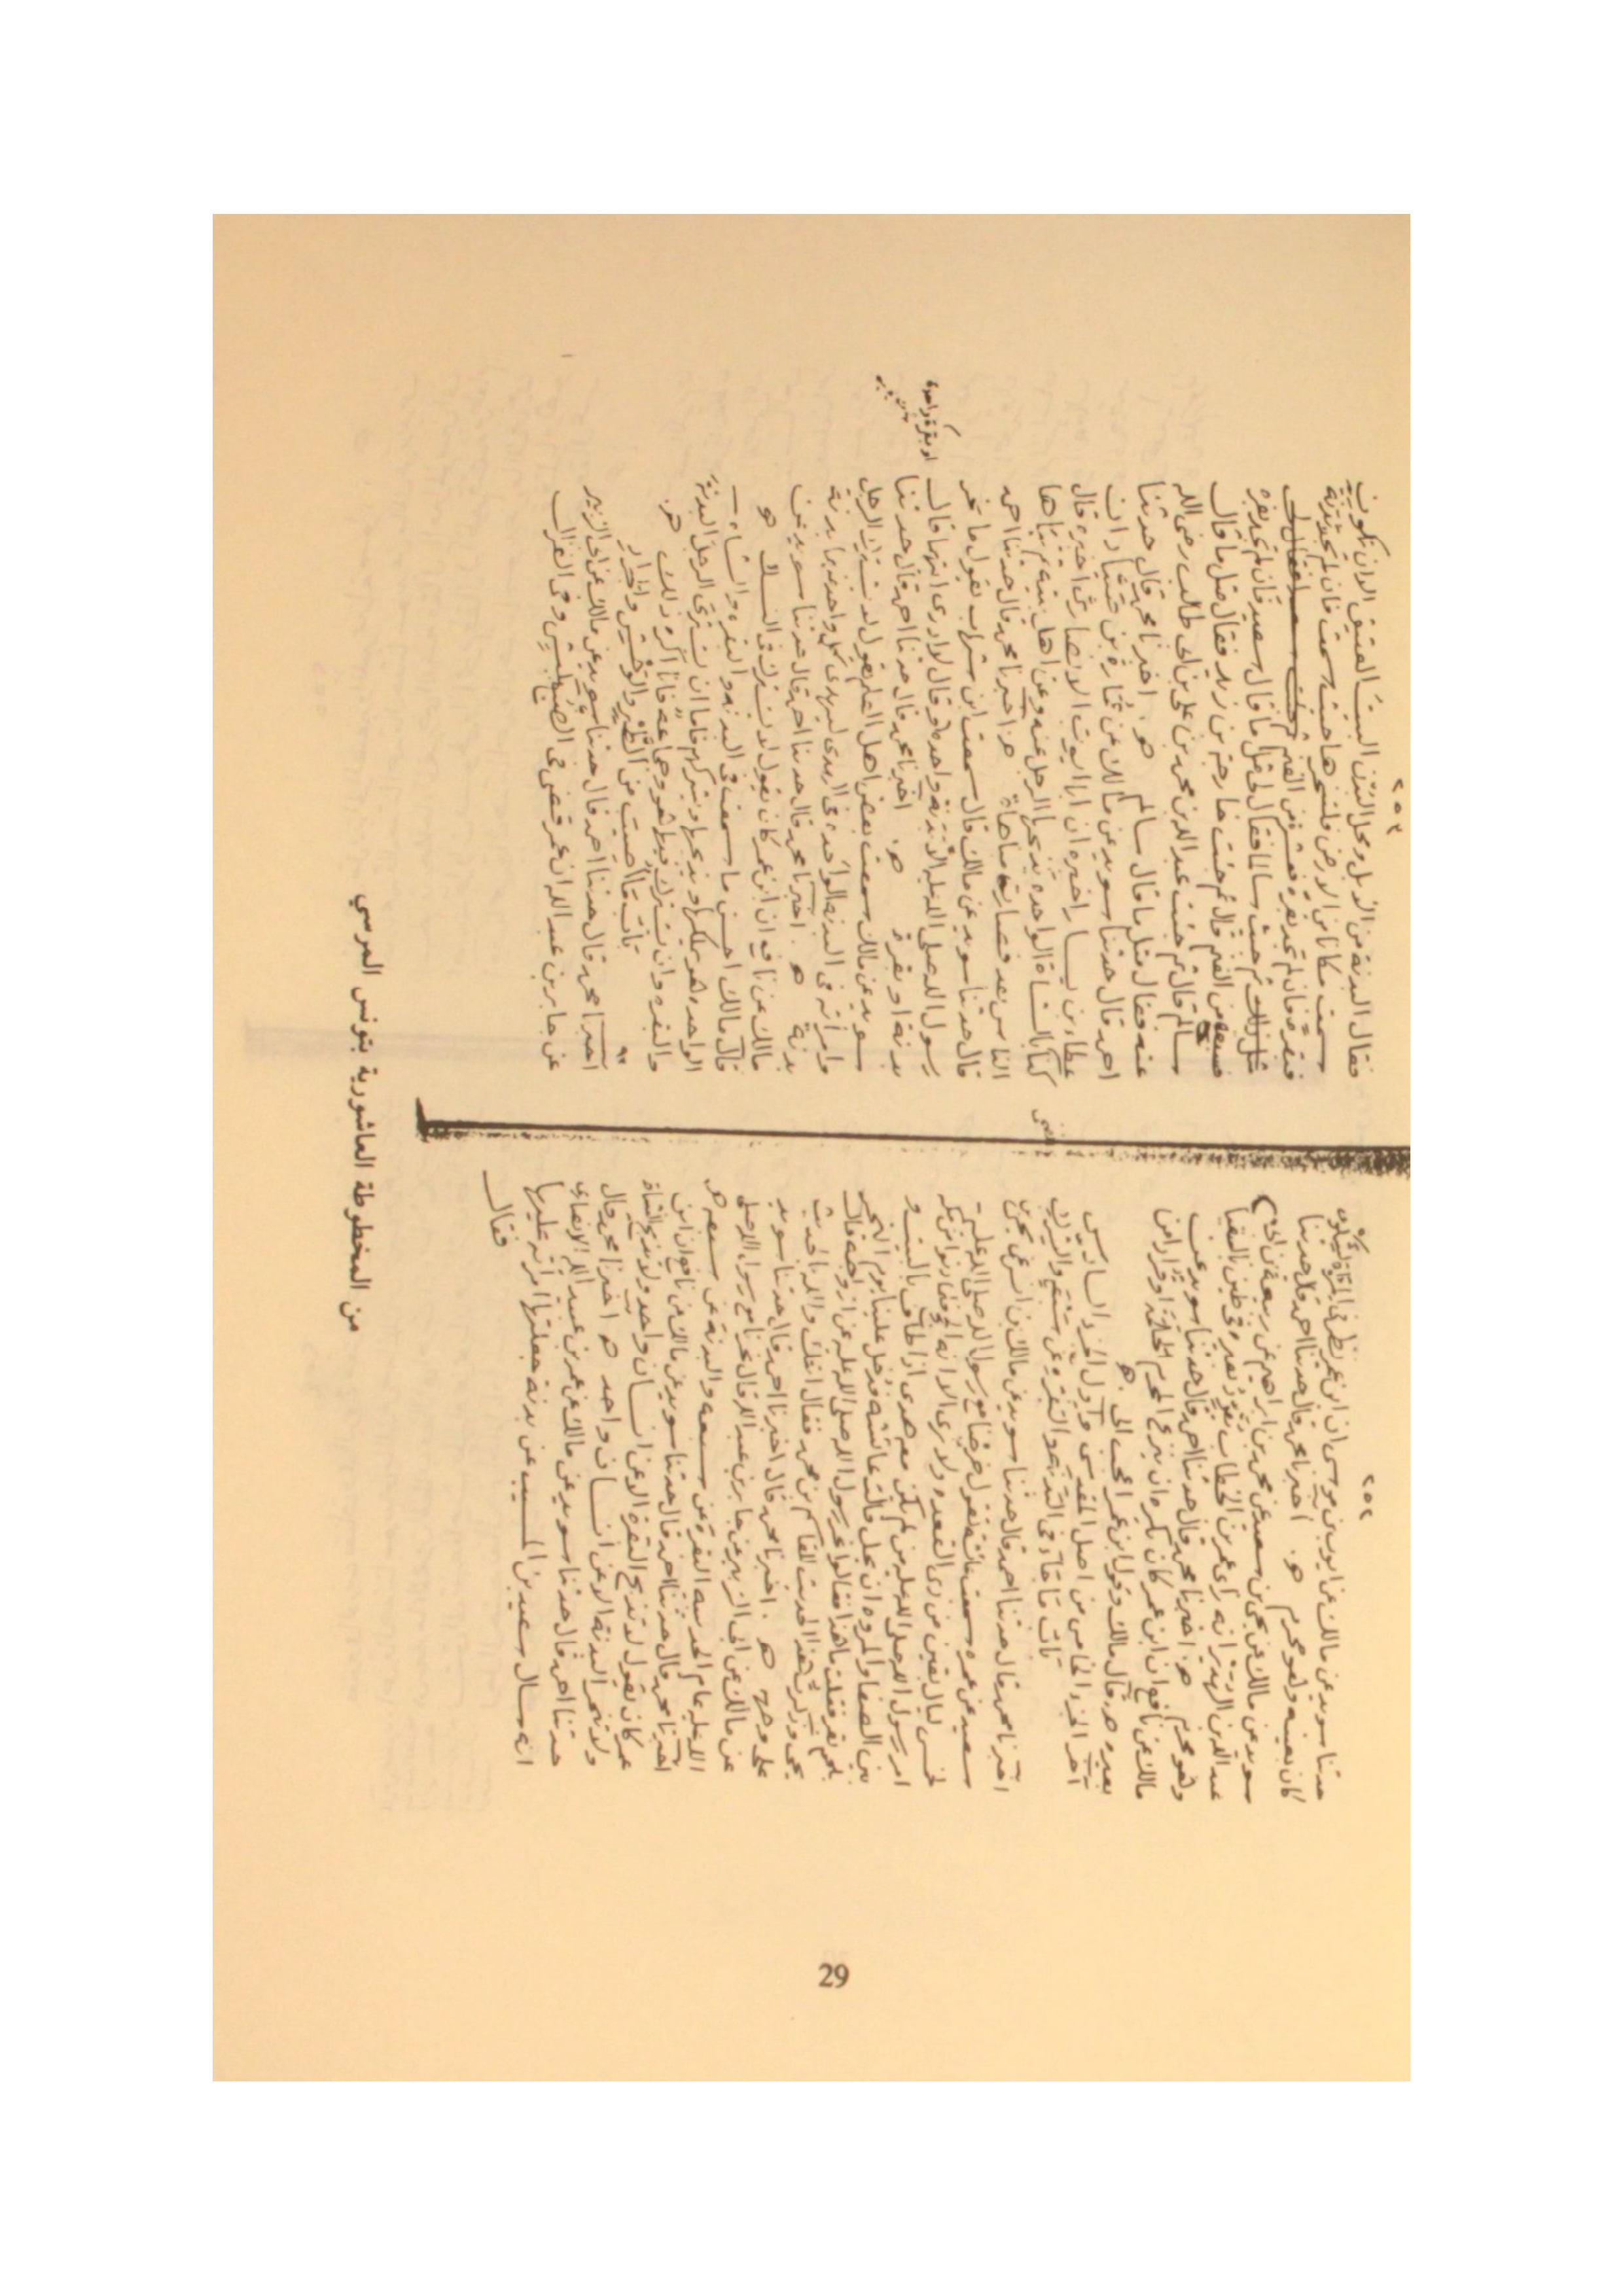 ٢٥٢
حدثنا سويد عن مالك عن ايوب بن موسى ان ابن عمر نظر في المراة لشكوى
كان بعينيه وهو محرم هـ اخبرنا محمد قال حدثنا احمد قال حدثنا
سويد عن مالك عن يحيى بن سعيد عن محمد بن ابراهيم عن ربيعة بن ابي
عبد الله بن الهدير انه راى عمر بن الخطاب يقرد بعيره في طين بالسقيا
وهو محرم هـ اخبرنا محمد قال حدثنا احمد قال حدثنا سويد عن
مالك عن نافع ان ابن عمر كان يكره ان ينزع المحرم الحلمة او قرادا من
بعيره هـ قال مالك وقول ابن عمر احب الى هـ
اخر الجزء الخامس من اصل المقدسي واول الجزء السادس
باب ما جاء في البقرة عن
اخبرنا محمد قال حدثنا احمد قال حدثنا سويد عن مالك بن انس عن يحيى بن
سعيد عن عمرة سمعت عائشة تقول خرجنا مع رسول الله صلى الله عليه
لخمس ليال بقين من ذي القعدة ولا نرى الا انه الحج فلما دنونا من مكة
امر رسول الله صلى الله عليه من لم يكن معه هدي اذا طاف بالبيت و
بين الصفا والمروة ان يحل قالت عائشة فدخل علينا يوم النحر
بلحم بقر فقلت ما هذا فقالوا نحر رسول الله صلى الله عليه عن ازواجه قال
يحيى وذكرت هذا الحديث للقاسم بن محمد فقال اتتك والله بالحديث
على وجهه هـ اخبرنا محمد قال اخبرنا احمد قال حدثنا سويد
عن مالك عن ابي الزبير عن جابر بن عبد الله قال نحرنا مع رسول الله صلى
الله عليه عام الحديبية البقرة عن سبعة والبدنة عن سبعة هـ
اخبرنا محمد قال حدثنا احمد قال حدثنا سويد عن مالك عن نافع ان ابن
عمر كان يقول لا تذبح البقرة الا عن انسان واحد ولا تذبح الشاة
ولا تنحر البدنة الا عن انسان واحد هـ اخبرنا محمد قال
حدثنا احمد قال حدثنا سويد عن مالك عن عمرو بن عبيد الله الانصاري
انه سال سعيد بن المسيب عن بدنة جعلتها امراة عليها
فقال
٢٥٣
فقال البدنة من الابل ومحل البدن البيت العتيق الا ان تكون
سمت مكانا من الارض فلتنحرها حيث سمت فان لم تجد بدنة
فبقرة فان لم تجد بقرة فعشر من الغنم
مثل ذلك ثم جئت سالما فقال لي مثل ما قال سعيد فان لم تجد بقرة
فسبعة من الغنم قال ثم جئت خارجة بن زيد فقال مثل ما قال
سالم قال ثم جئت عبد الله بن محمد بن علي بن ابي طالب رضي الله
عنه فقال مثل ما قال سالم هـ اخبرنا محمد قال حدثنا
احمد قال حدثنا سويد عن مالك عن عمارة بن صياد ان
عطاء بن يسار اخبره ان ابا ايوب الانصاري اخبره قال
كنا بالشاة الواحدة يذبحها الرجل عنه وعن اهل بيته ثم تباها
الناس بعد فصارت مباهاة هـ اخبرنا محمد قال حدثنا احمد
قال حدثنا سويد عن مالك قال سمعت ابن شهاب يقول ما نحر
رسول الله صلى الله عليه الا بدنة واحدة قال لا ادري ايتهما قال
او بقرة واحدة
بدنة او بقرة هـ اخبرنا محمد قال حدثنا احمد قال حدثنا
سويد عن مالك سمعت بعض اهل العلم يقول لا يشترك الرجل
وامراته في البدنة الواحدة في الهدي ليهدي كل واحد بدنة
بدنة هـ اخبرنا محمد قال حدثنا احمد قال حدثنا سويد عن
مالك عن نافع ان ابن عمر كان يقول لا يشترك في النسك هـ
قال مالك احسن ما سمعت في البدنة والبقرة والشاة
الواحدة هو يملكها ويذبحها ويشركهم فاما ان يشتري الرجل البدنة
والبقرة وان يشترك فيها هو وجماعة فانا اكره ذلك هـ
باب ما اصيب من الطير والوحش
اخبرنا محمد قال حدثنا احمد قال حدثنا سويد عن مالك عن ابي الزبير
عن جابر بن عبد الله ان عمر قضى في الضبع بكبش وفي الغزال
من المخطوطة العاشورية بتونس المرسي
29